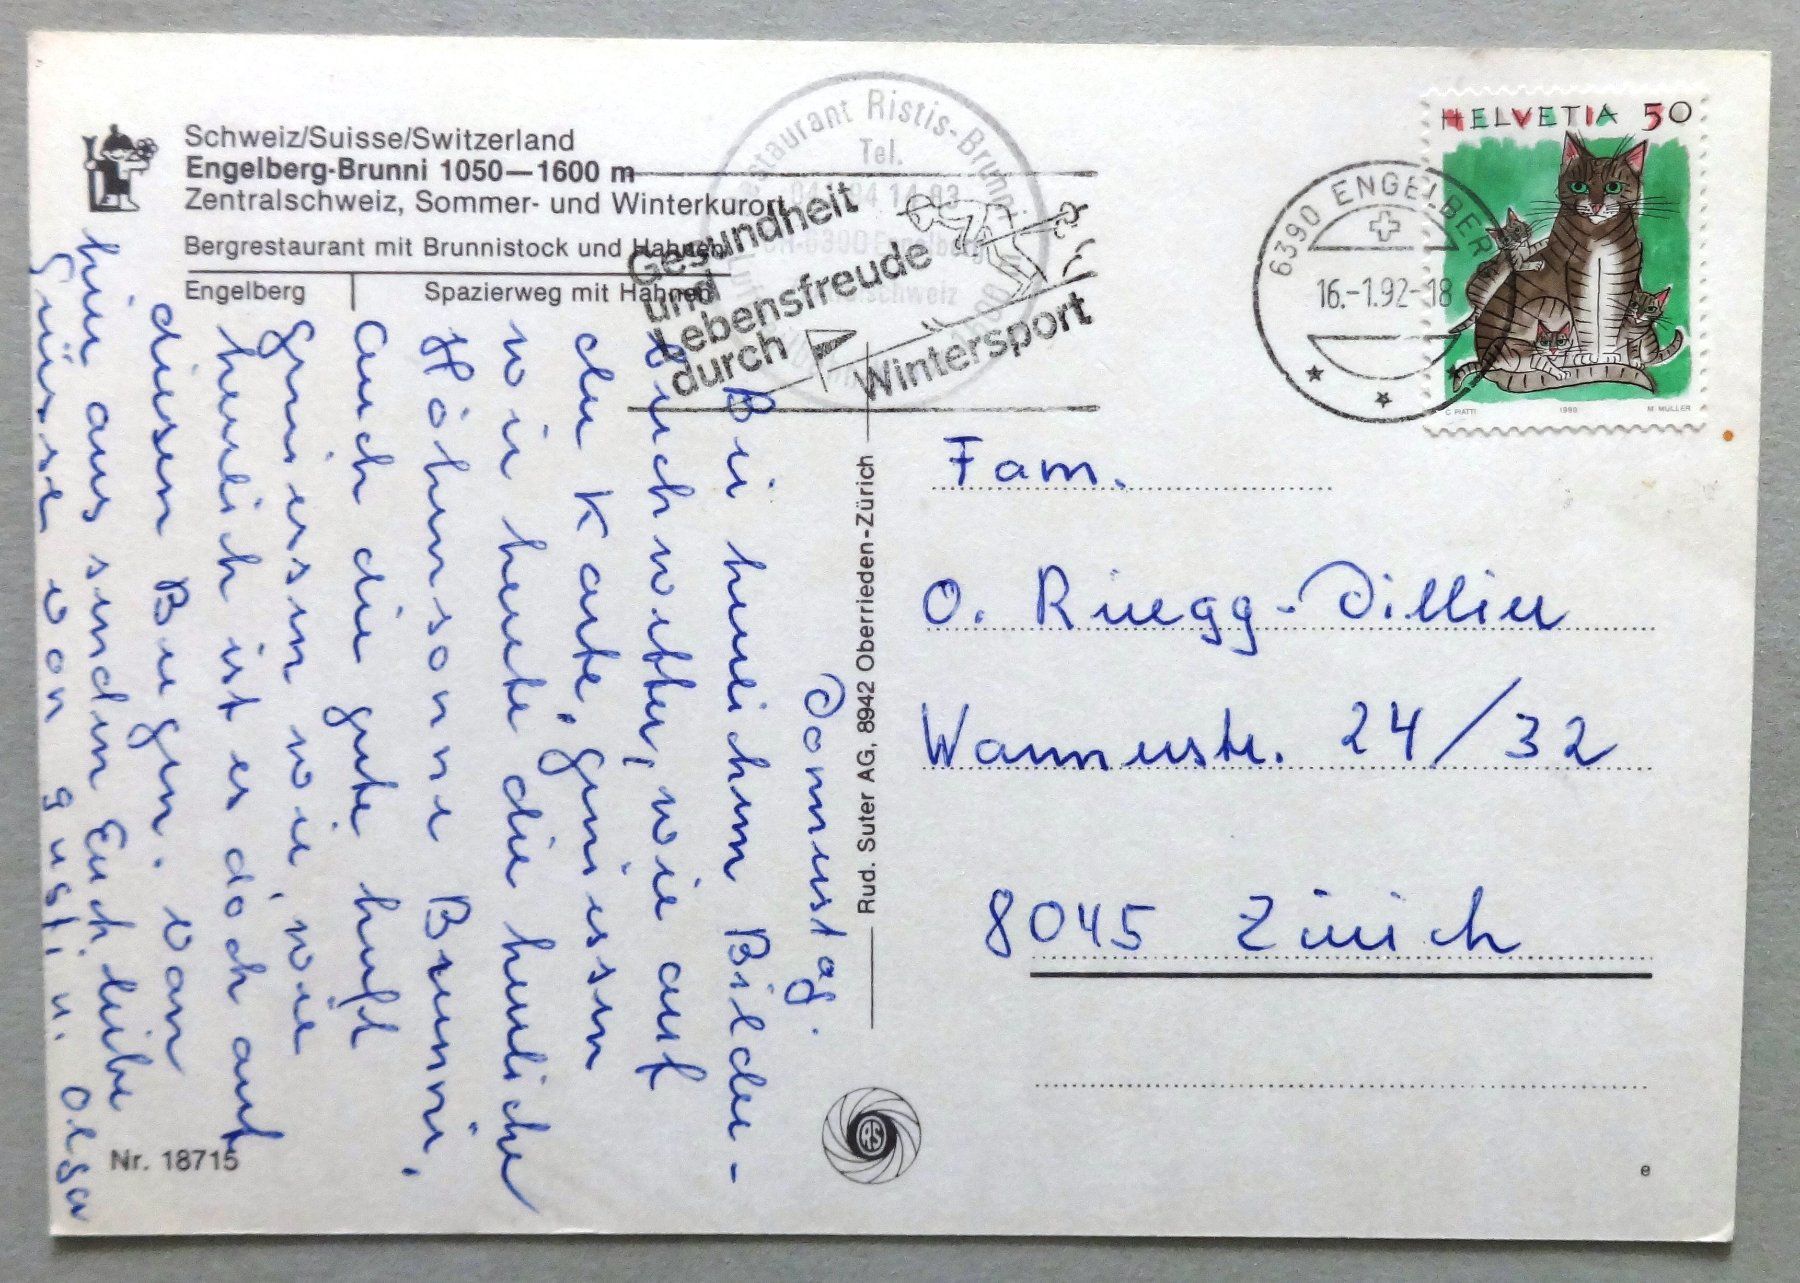 Schweiz/Suisse/Switzerland
Engelberg-Brunni 1050—1600 m
Zentralschweiz, Sommer- und Winterkurort
Bergrestaurant mit Brunnistock und Hahnen
Engelberg
Spazierweg mit Hahnen
Restaurant Ristis-Brunni
Tel.
Gesundheit
und
Lebensfreude
durch
Wintersport
6390 ENGELBERG
16.-1.92-18
HELVETIA 50
C PIATTI 1990 M. MÜLLER
Donnerstag.
Bei herrlichem Bilder-
buchwetter, wie auf
der Karte, geniessen
wir heute die herrliche
Höhensonne Brunni,
auch die gute Luft
geniessen wir, wie
herrlich ist es doch auf
diesen Bergen. Von
hier aus senden Euch liebe
Grüsse von Gusti u. Olga
Rud. Suter AG, 8942 Oberrieden-Zürich
RS
Fam.
O. Rüegg-Dillier
Wannerstr. 24/32
8045 Zürich
Nr. 18715
e